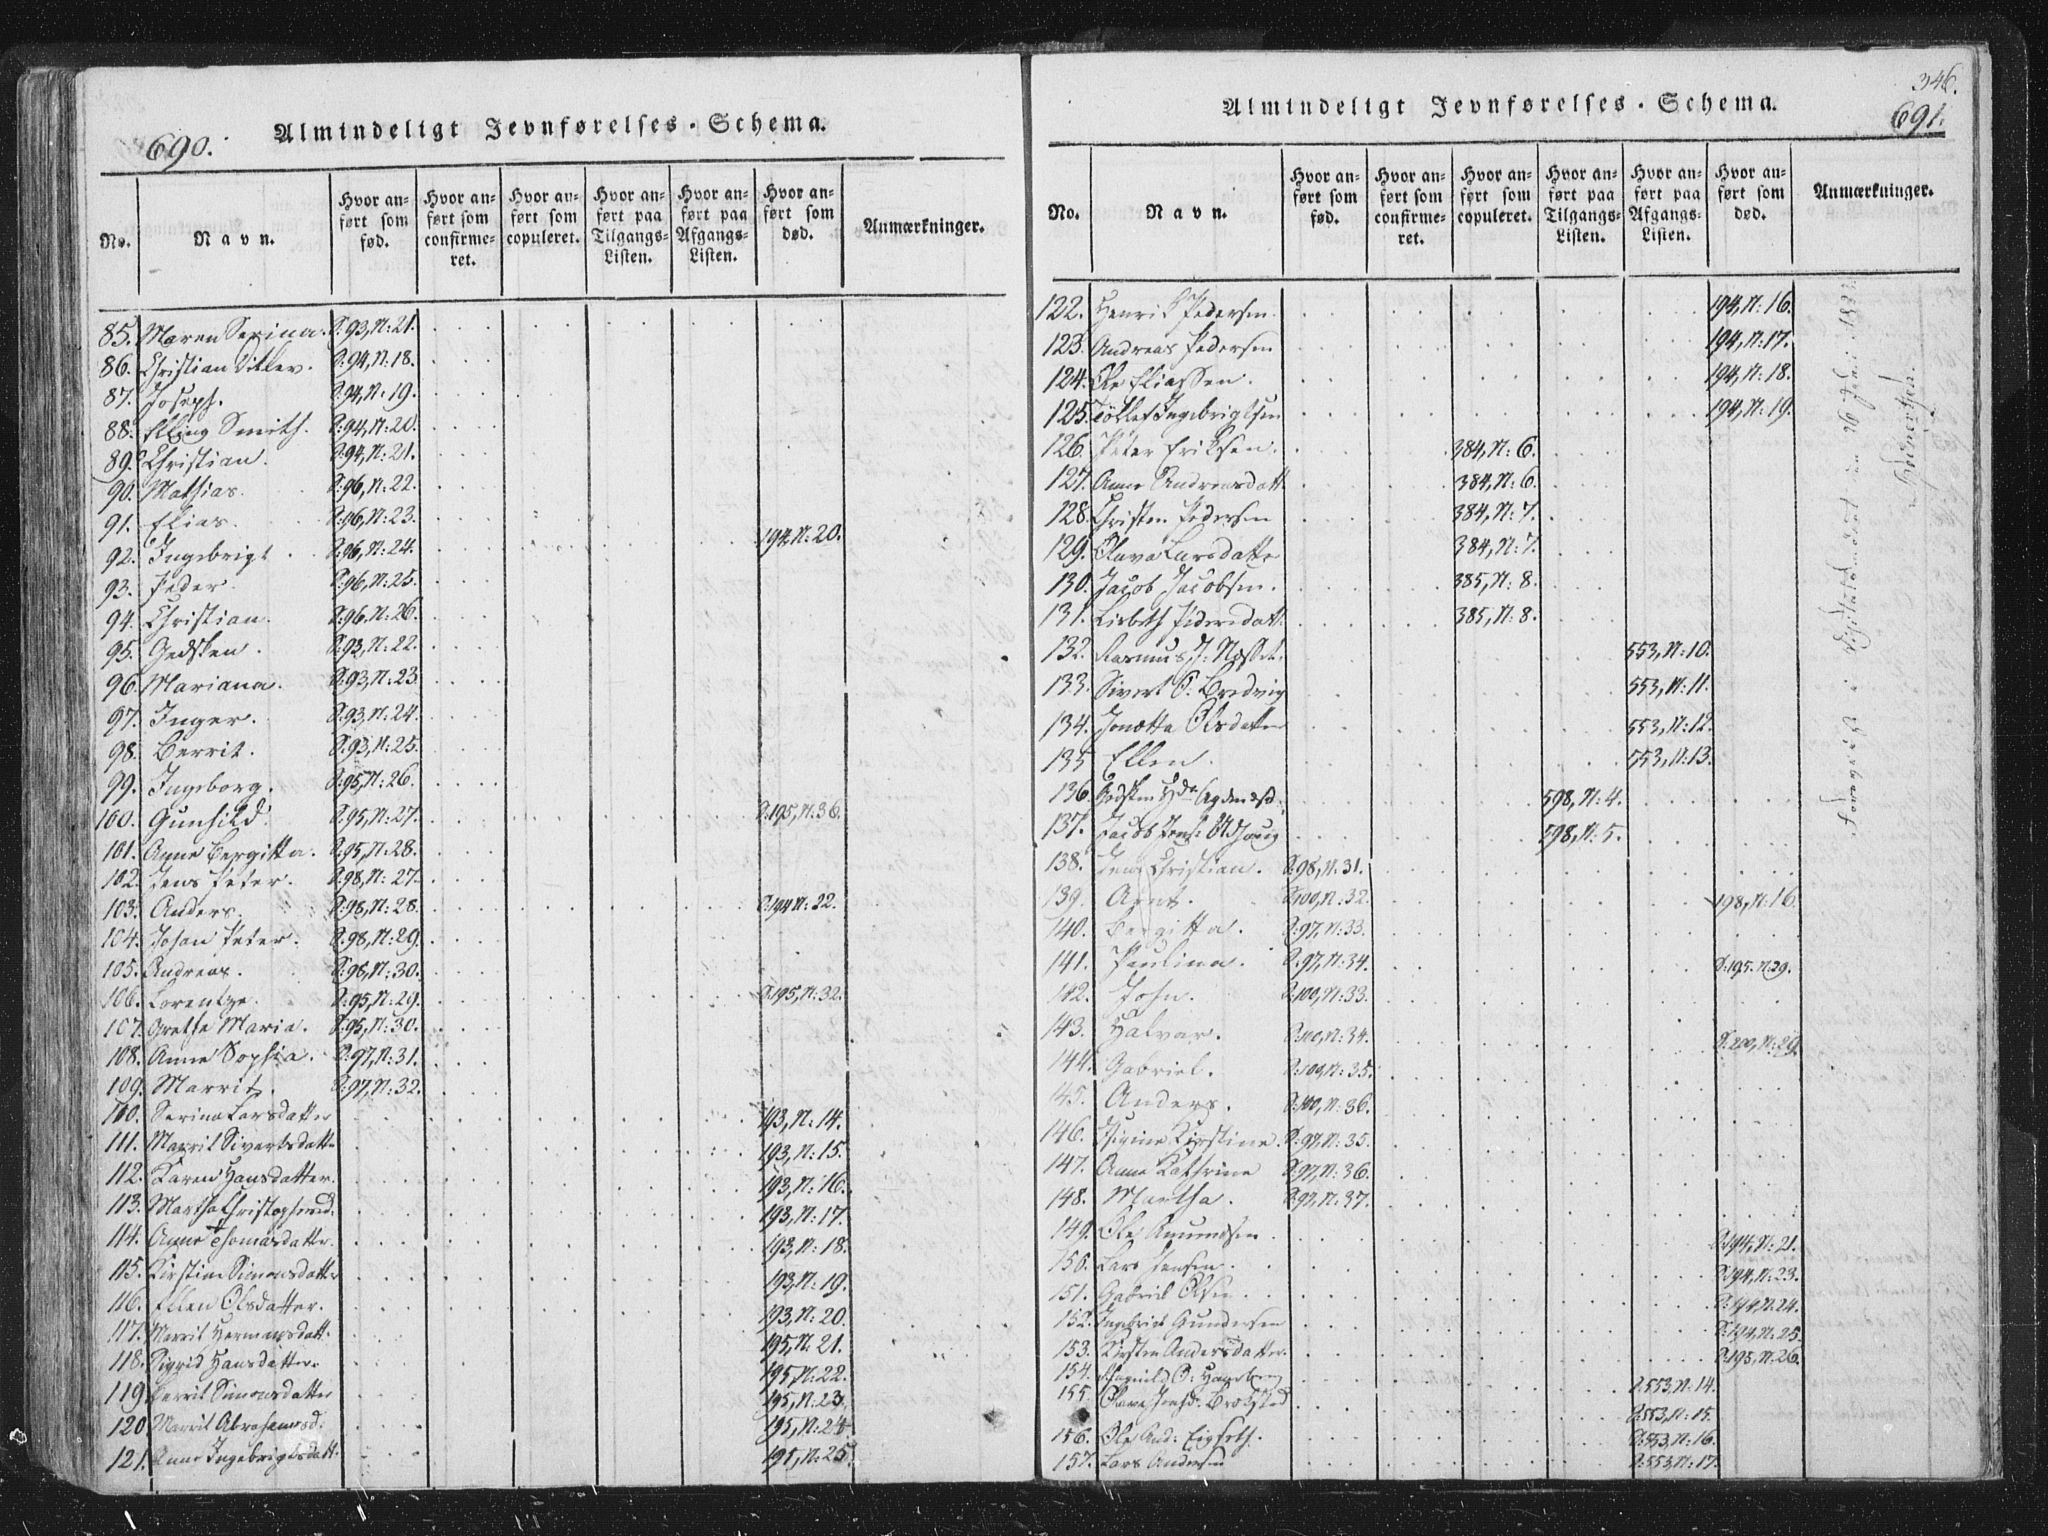 690.
Almindeligt Jevnførelses-Schema.
No. Navn. Hvor anført som fød. Hvor anført som confirmeret. Hvor anført som copuleret. Hvor anført paa Tilgangs-Listen. Hvor anført paa Afgangs-Listen. Hvor anført som død. Anmærkninger.
85. Maren Serina. S:93, N:21.
86. Christian Ditlev. S:94, N:18.
87. Joseph. S:94, N:19.
88. Elling Smith. S:94, N:20.
89. Christian. S:94, N:21.
90. Mathias. S:96, N:22.
91. Elias. S:96, N:23.
92. Ingebrigt S:96, N:24. 194, N:20.
93. Peder. S:96, N:25.
94. Christian. S:96, N:26.
95. Gedsken. S:93, N:22.
96. Mariana. S:93, N:23.
97. Inger. S:93, N:24.
98. Berrit. S:93, N:25.
99. Ingeborg. S:95, N:26.
100. Gunhild. S:95, N:27. S:195, N:36.
101. Anne Bergitta. S:95, N:28.
102. Jens Peter. S:98, N:27.
103. Anders. S:98, N:28. S:194 N:22.
104. Johan Peter. S:98, N:29.
105. Andreas. S:98, N:30.
106. Lorentze. S:95, N:29. S:195, N:32.
107. Grethe Maria. S:95, N:30.
108. Anne Sophia. S:97, N:31.
109. Marrit. S:97, N:32.
110. Serina Larsdatter 193, N:14.
111. Marrit Sivertsdatter 193, N:15.
112. Karen Hansdatter. 193, N:16.
113. Martha Christophersd. 193, N:17.
114. Anne Thomasdatter. 193, N:18.
115. Kirstine Simonsdatter 193, N:19.
116. Ellen Olsdatter. 193, N:20.
117. Marrit Hermansdatt. 195, N:21.
118. Sigrid Hansdatter. 195, N:22.
119 Berrit Simonsdatter 195, N:23.
120 Marrit Abrahamsd: 195, N:24
121. Anne Ingebrigtsdatt. 195, N:25.
346.
691.
Almindeligt Jevnførelses-Schema.
No. Navn. Hvor anført som fød. Hvor anført som confirmeret. Hvor anført som copuleret. Hvor anført paa Tilgangs-Listen. Hvor anført paa Afgangs-Listen. Hvor anført som død. Anmærkninger.
122. Henrik Pedersen. 194, N:16.
123. Andreas Pedersen 194, N:17.
124. Ole Eliassen. 194, N:18.
125. Tollef Ingebrigtsen 194, N:19.
126. Peter Eriksen. 384, N:6.
127. Anne Andreasdatt. 384, N:6.
128. Christen Pedersen 384, N:7.
129. Olava Larsdatter 384, N:7.
130. Jacob Jacobsen. 385, N:8.
131. Lisbeth Pedersdatt. 385, N:8.
132. Rasmus J: 553, N:10.
133. Sivert O: Bredvig 553, N:11.
134. Jonetta Olsdatter 553, N:12.
135 Ellen. 553, N:13.
136. Gedsken 598, N:4.
137. Jacob Jens: 598, N:5.
138. Jens Christian. S:98, N:31.
139. Arnt. S:100, N:32. 198, N:16.
140. Bergitta. S:97, N:33.
141. Paulina. S:97, N:34. S:195. N:29.
142. John. S:100, N:33.
143. Halvar. S:100, N:34. S:200, N:29
144. Gabriel. S:100, N:35.
145. Anders. S:100, N:36.
146. Kirstine. S:97, N:35.
147. Anne Kathrine S:97, N:36.
148. Martha. S:97, N:37.
149. Ole Amundsen S:194, N:21.
150. Lars Jensen. S:194, N:23.
151. Gabriel Olsen S:194, N:24.
152. Ingebrigt Gundersen S:194, N:25
153. Kirsten Andersdatter. S:195, N:26.
154. S:553, N:14.
155. Olava S:553, N:15.
156. Ole And: S:553, N:16.
157. Lars Andersen S:553, N:17.